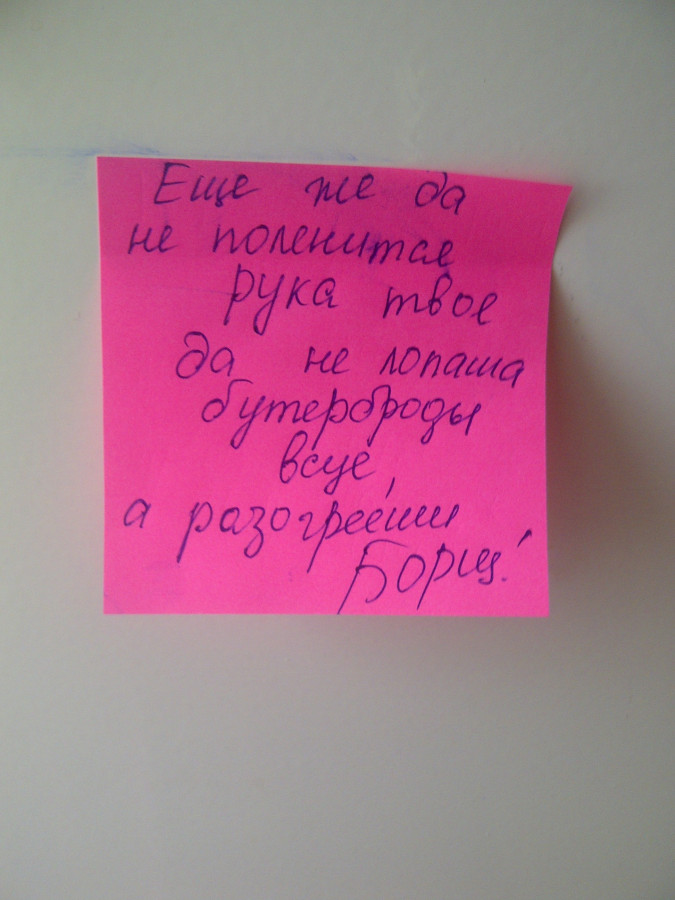 Еще же да
не поленится
рука твое
да не лопаша
бутерброды
всуе,
а разогрееши
Борщ!